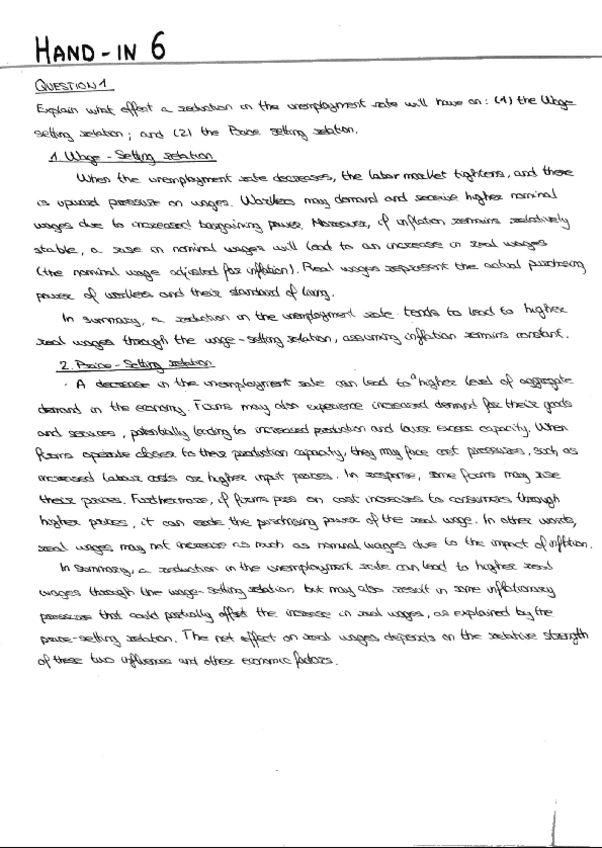 HAND-IN 6
QUESTION 1
Explain what effect a reduction in the unemployment rate will have on: (1) the Wage
setting relation; and (2) the Price setting relation.
1. Wage-Setting relation
When the unemployment rate decreases, the labor market tightens, and there
is upward pressure on wages. Workers may demand and receive higher nominal
wages due to increased bargaining power. Moreover, if inflation remains relatively
stable, a rise in nominal wages will lead to an increase in real wages
(the nominal wage adjusted for inflation). Real wages represent the actual purchasing
power of workers and their standard of living.
In summary, a reduction in the unemployment rate tends to lead to higher
real wages through the wage-setting relation, assuming inflation remains constant.
2. Price-Setting relation
· A decrease in the unemployment rate can lead to a higher level of aggregate
demand in the economy. Firms may also experience increased demand for their goods
and services, potentially leading to increased production and lower excess capacity. When
firms operate closer to their production capacity, they may face cost pressures, such as
increased labour costs or higher input prices. In response, some firms may rise
their prices. Furthermore, if firms pass on cost increases to consumers through
higher prices, it can erode the purchasing power of the real wage. In other words,
real wages may not increase as much as nominal wages due to the impact of inflation.
In summary, a reduction in the unemployment rate can lead to higher real
wages through the wage-setting relation but may also result in some inflationary
pressures that could partially offset the increase in real wages, as explained by the
price-setting relation. The net effect on real wages depends on the relative strength
of these two influences and other economic factors.